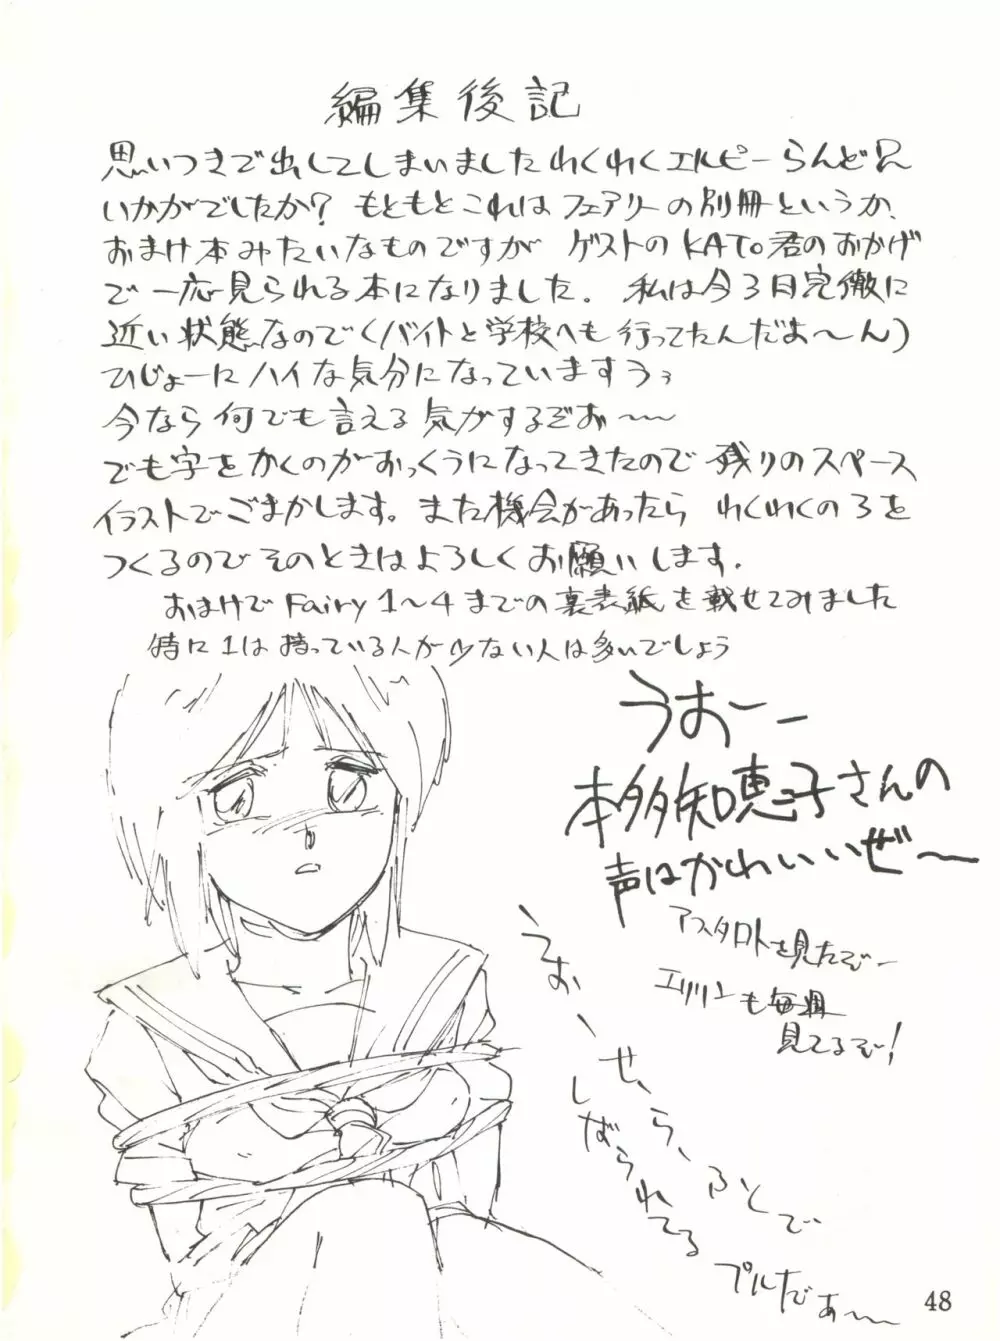 編集後記
思いつきで出してしまいましたわくわくエルピーらんど2
いかがでしたか？もともとこれはフェアリーの別冊というか、
おまけ本みたいなものですが ゲストのKATO君のおかげ
で一応見られる本になりました。私は今3日完徹に
近い状態なので(バイトと学校へも行ってたんだよ〜ん)
ひじょーにハイな気分になっていますうぅ
今なら何でも言える気がするぞお〜〜
でも字をかくのがおっくうになってきたので残りのスペース
イラストでごまかします。また機会があったら わくわくの3を
つくるのでそのときはよろしくお願いします。
おまけでFairy 1〜4までの裏表紙を載せてみました
特に1は持っている人が少ない人は多いでしょう
うおーー
本多知恵子さんの
声はかわいいぜ〜
アスタロトを見たぞー
エリリンも毎週
見てるぞー！
うおーーせ、らー、ふくで
しばられてる
プルだあ〜〜
48